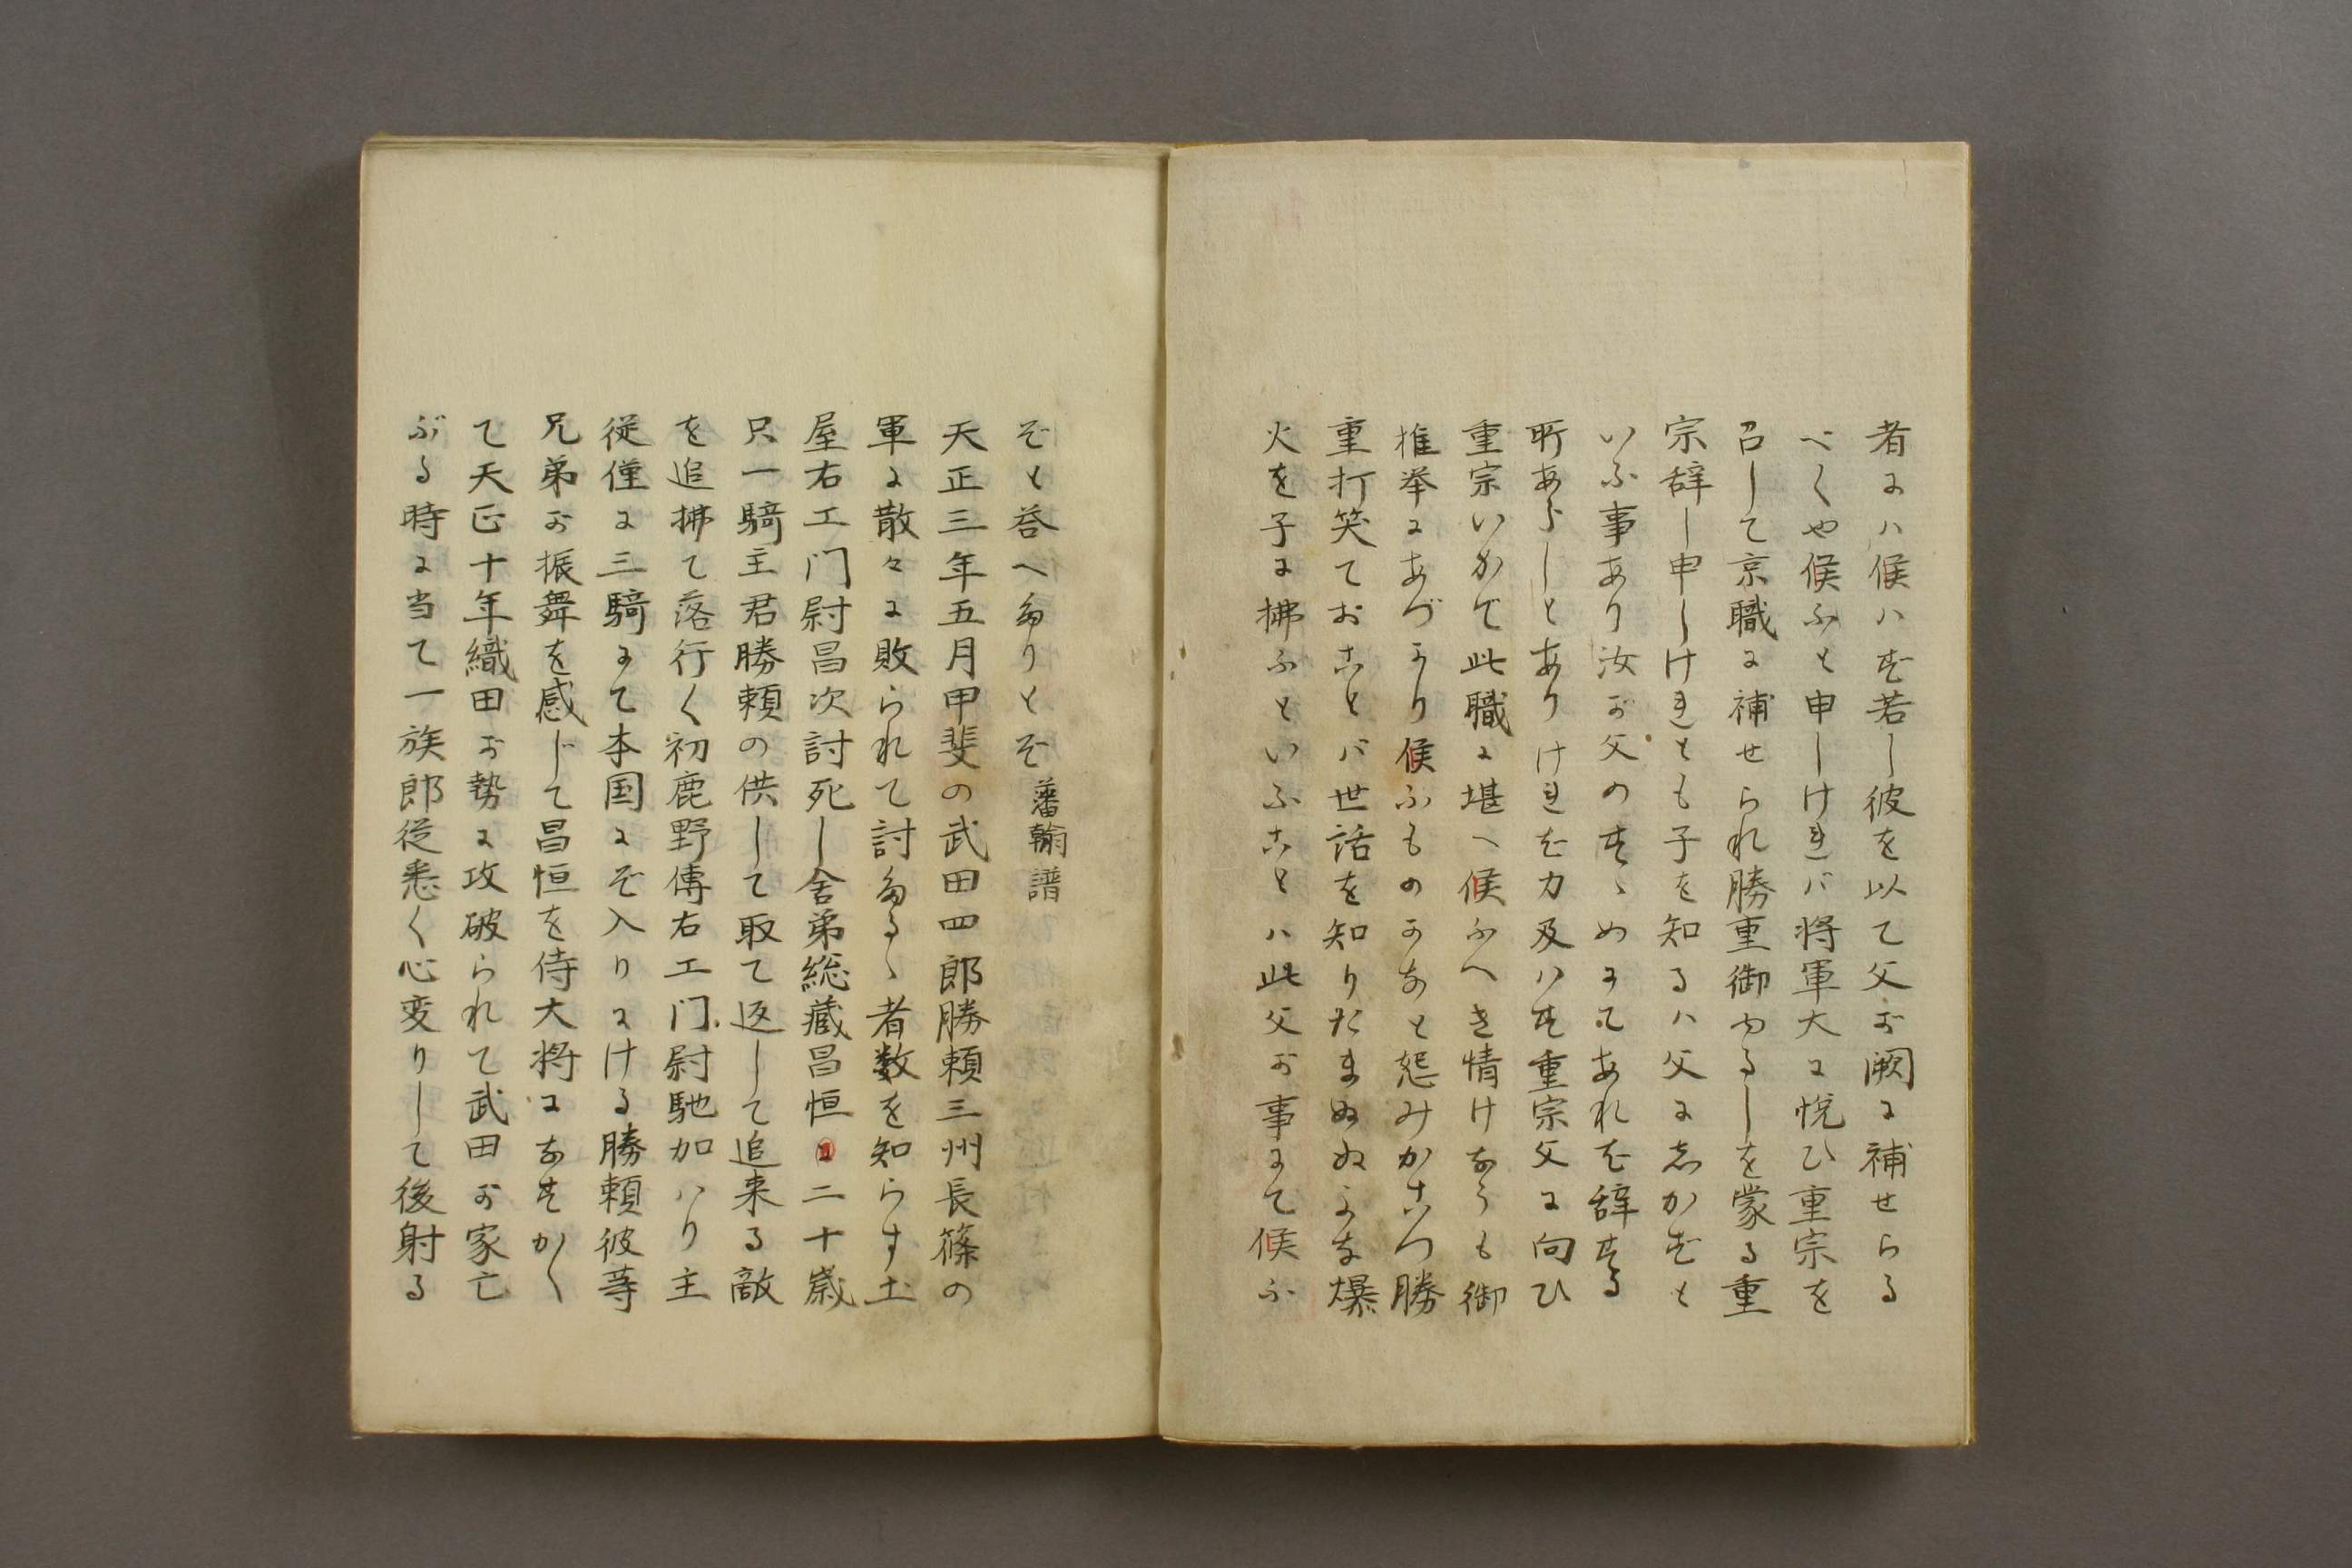 者に八候ハず若し彼を以て父が闕に補せらる
べくや候ふと申しけれバ将軍大に悦ひ重宗を
召して京職に補せられ勝重御ゆるしを蒙る重
宗辞し申しけれとも子を知るハ父にしかずと
いふ事あり汝が父のすゝめにてあれを辞する
所あらしとありけれを力及ハす重宗父に向ひ
重宗いかで此職に堪へ候ふへき情けなうも御
推举にあづかり候ふものかなと怨みかこつ勝
重打笑ておことバ世話を知りたまぬねよな爆
火を子に拂ふといふことハ此父が事にて候ふ
ぞと答へたりとぞ 藩翰譜
天正三年五月甲斐の武田四郎勝頼三州長篠の
軍に散々に敗られて討たるゝ者数を知らす土
屋右エ门尉昌次討死し舎弟総蔵昌恒に二十歳
只一騎主君勝頼の供して取て返して追来る敵
を追拂て落行く初鹿野傳右エ门尉馳加ハり主
従僅に三騎にて本国にぞ入りにける勝頼彼等
兄弟が振舞を感じて昌恒を侍大将になすかく
て天正十年織田が勢に攻破られて武田が家亡
ぶる時に当て一族郎従悉く心変りして後射る